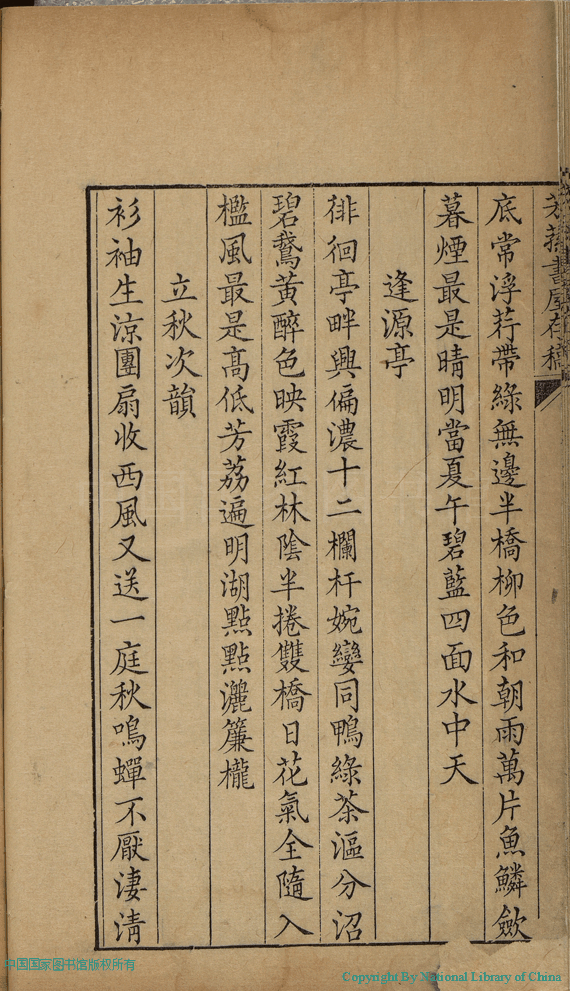 底常浮荇帶綠無邊半橋柳色和朝雨萬片魚鱗歛
暮煙最是晴明當夏午碧藍四面水中天
逢源亭
徘徊亭畔興偏濃十二欄杆婉孌同鴨綠茶漚分沼
碧鵞黃醉色映霞紅林陰半捲雙橋日花氣全隨入
檻風最是高低芳荔遍明湖點點灑簾櫳
立秋次韻
衫袖生涼團扇收西風又送一庭秋鳴蟬不厭淒清
中国国家图书馆版权所有
Copyright By National Library of China